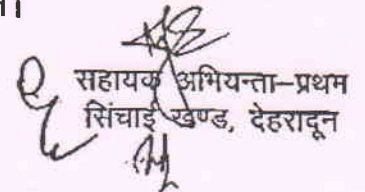 सहायक अभियन्ता–प्रथम
सिंचाई खण्ड, देहरादून